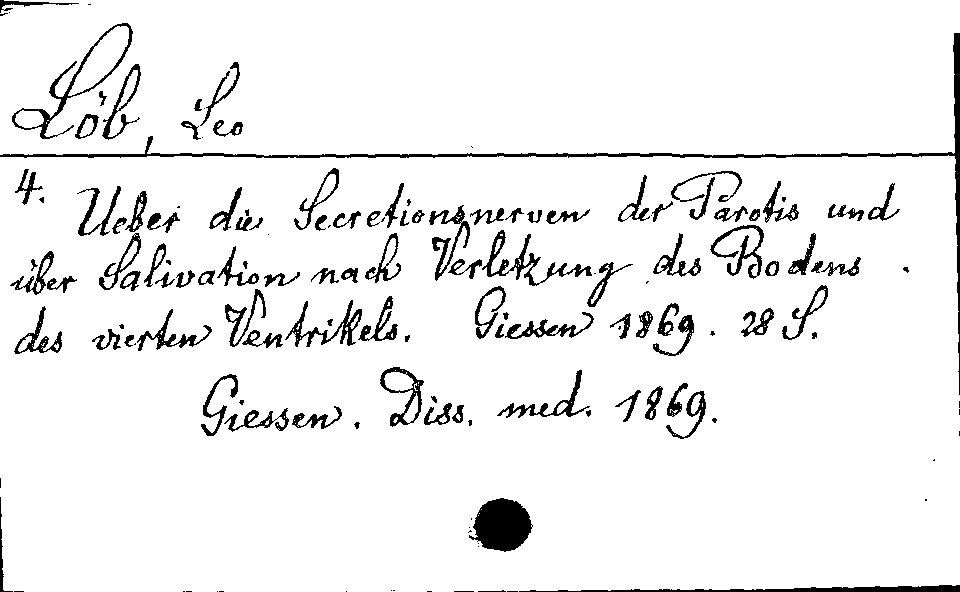 Löb, Leo
4.
Ueber die Secretionsnerven der Parotis und
über Salivation nach Verletzung des Bodens
des vierten Ventrikels. Giessen 1869. 28 S.
Giessen. Diss. med. 1869.